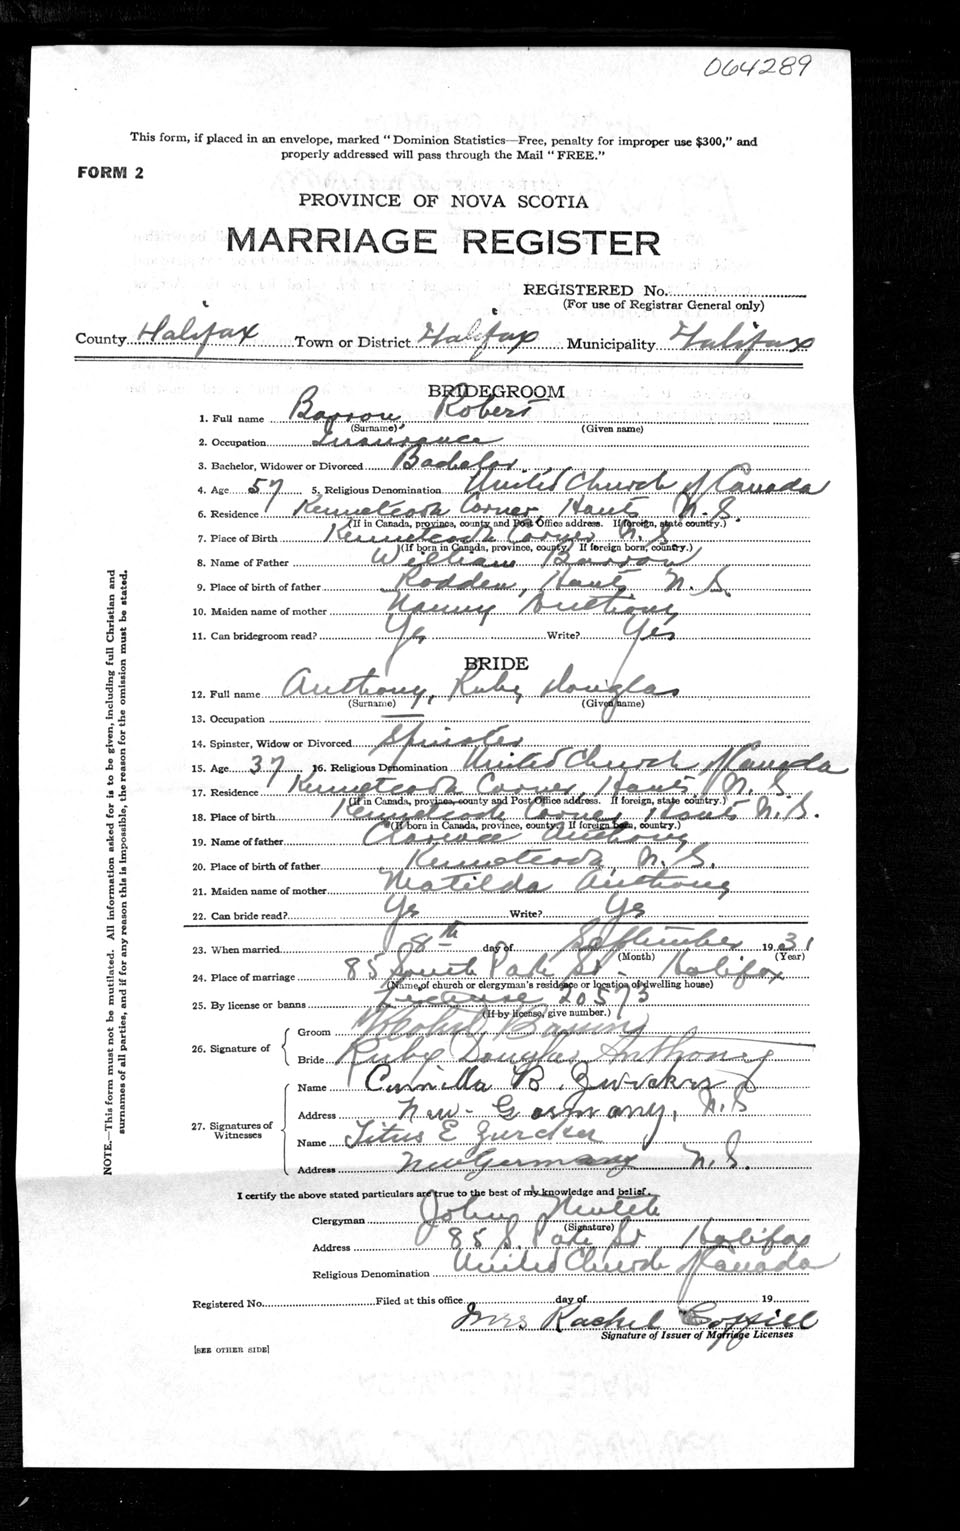 064289
This form, if placed in an envelope, marked "Dominion Statistics—Free, penalty for improper use $300," and
properly addressed will pass through the Mail "FREE."
FORM 2
PROVINCE OF NOVA SCOTIA
MARRIAGE REGISTER
REGISTERED No.
(For use of Registrar General only)
County Halifax Town or District Halifax Municipality Halifax
BRIDEGROOM
1. Full name Barron, Robert
(Surname) (Given name)
2. Occupation Insurance
3. Bachelor, Widower or Divorced Bachelor
4. Age 57 5. Religious Denomination United Church of Canada
6. Residence Kennetcook Corner, Hants N.S.
(If in Canada, province, county and Post Office address. If foreign, state country.)
7. Place of Birth Kennetcook Corner N.S.
(If born in Canada, province, county. If foreign born, country.)
8. Name of Father William Barron
9. Place of birth of father Hants N.S.
10. Maiden name of mother Nancy Anthony
11. Can bridegroom read? Yes Write? Yes
BRIDE
12. Full name Anthony, Ruby Douglas
(Surname) (Given name)
13. Occupation —
14. Spinster, Widow or Divorced Spinster
15. Age 37 16. Religious Denomination United Church of Canada
17. Residence Kennetcook Corner, Hants N.S.
(If in Canada, province, county and Post Office address. If foreign, state country.)
18. Place of birth Kennetcook Corner Hants N.S.
(If born in Canada, province, county. If foreign born, country.)
19. Name of father Clarence Anthony
20. Place of birth of father Kennetcook, N.S.
21. Maiden name of mother Matilda Anthony
22. Can bride read? Yes Write? Yes
23. When married 8th day of September 1931
(Month) (Year)
24. Place of marriage 85 South Park St. Halifax
(Name of church or clergyman's residence or location of dwelling house)
25. By license or banns License 20573
(If by license, give number.)
26. Signature of
Groom Robert Barron
Bride Ruby Douglas Anthony
27. Signatures of Witnesses
Name B.
Address New-Germany, N.S
Name Titus E Zurcker
Address New Germany N.S.
I certify the above stated particulars are true to the best of my knowledge and belief.
Clergyman John Mutch
(Signature)
Address 85 S. Park St Halifax
Religious Denomination United Church of Canada
Registered No. Filed at this office day of 19
Mrs Rachel
Signature of Issuer of Marriage Licenses
[SEE OTHER SIDE]
NOTE.—This form must not be mutilated. All information asked for is to be given, including full Christian and
surnames of all parties, and if for any reason this is impossible, the reason for the omission must be stated.